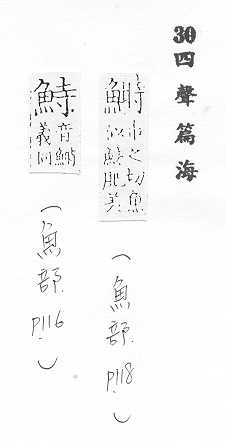 30四聲篇海
鰣 市之切魚
似魴肥美
(魚部 p118)
音鰣
義同
(魚部 p116)